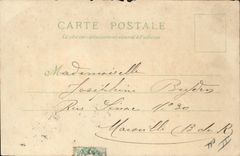 CARTE POSTALE
Ce côté est exclusivement réservé à l'adresse
Mademoiselle
Joséphine
Rue Sénac N° 30
Marseille (B de R)